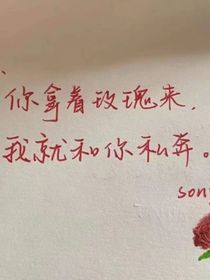 你拿着玫瑰来,
我就和你私奔。